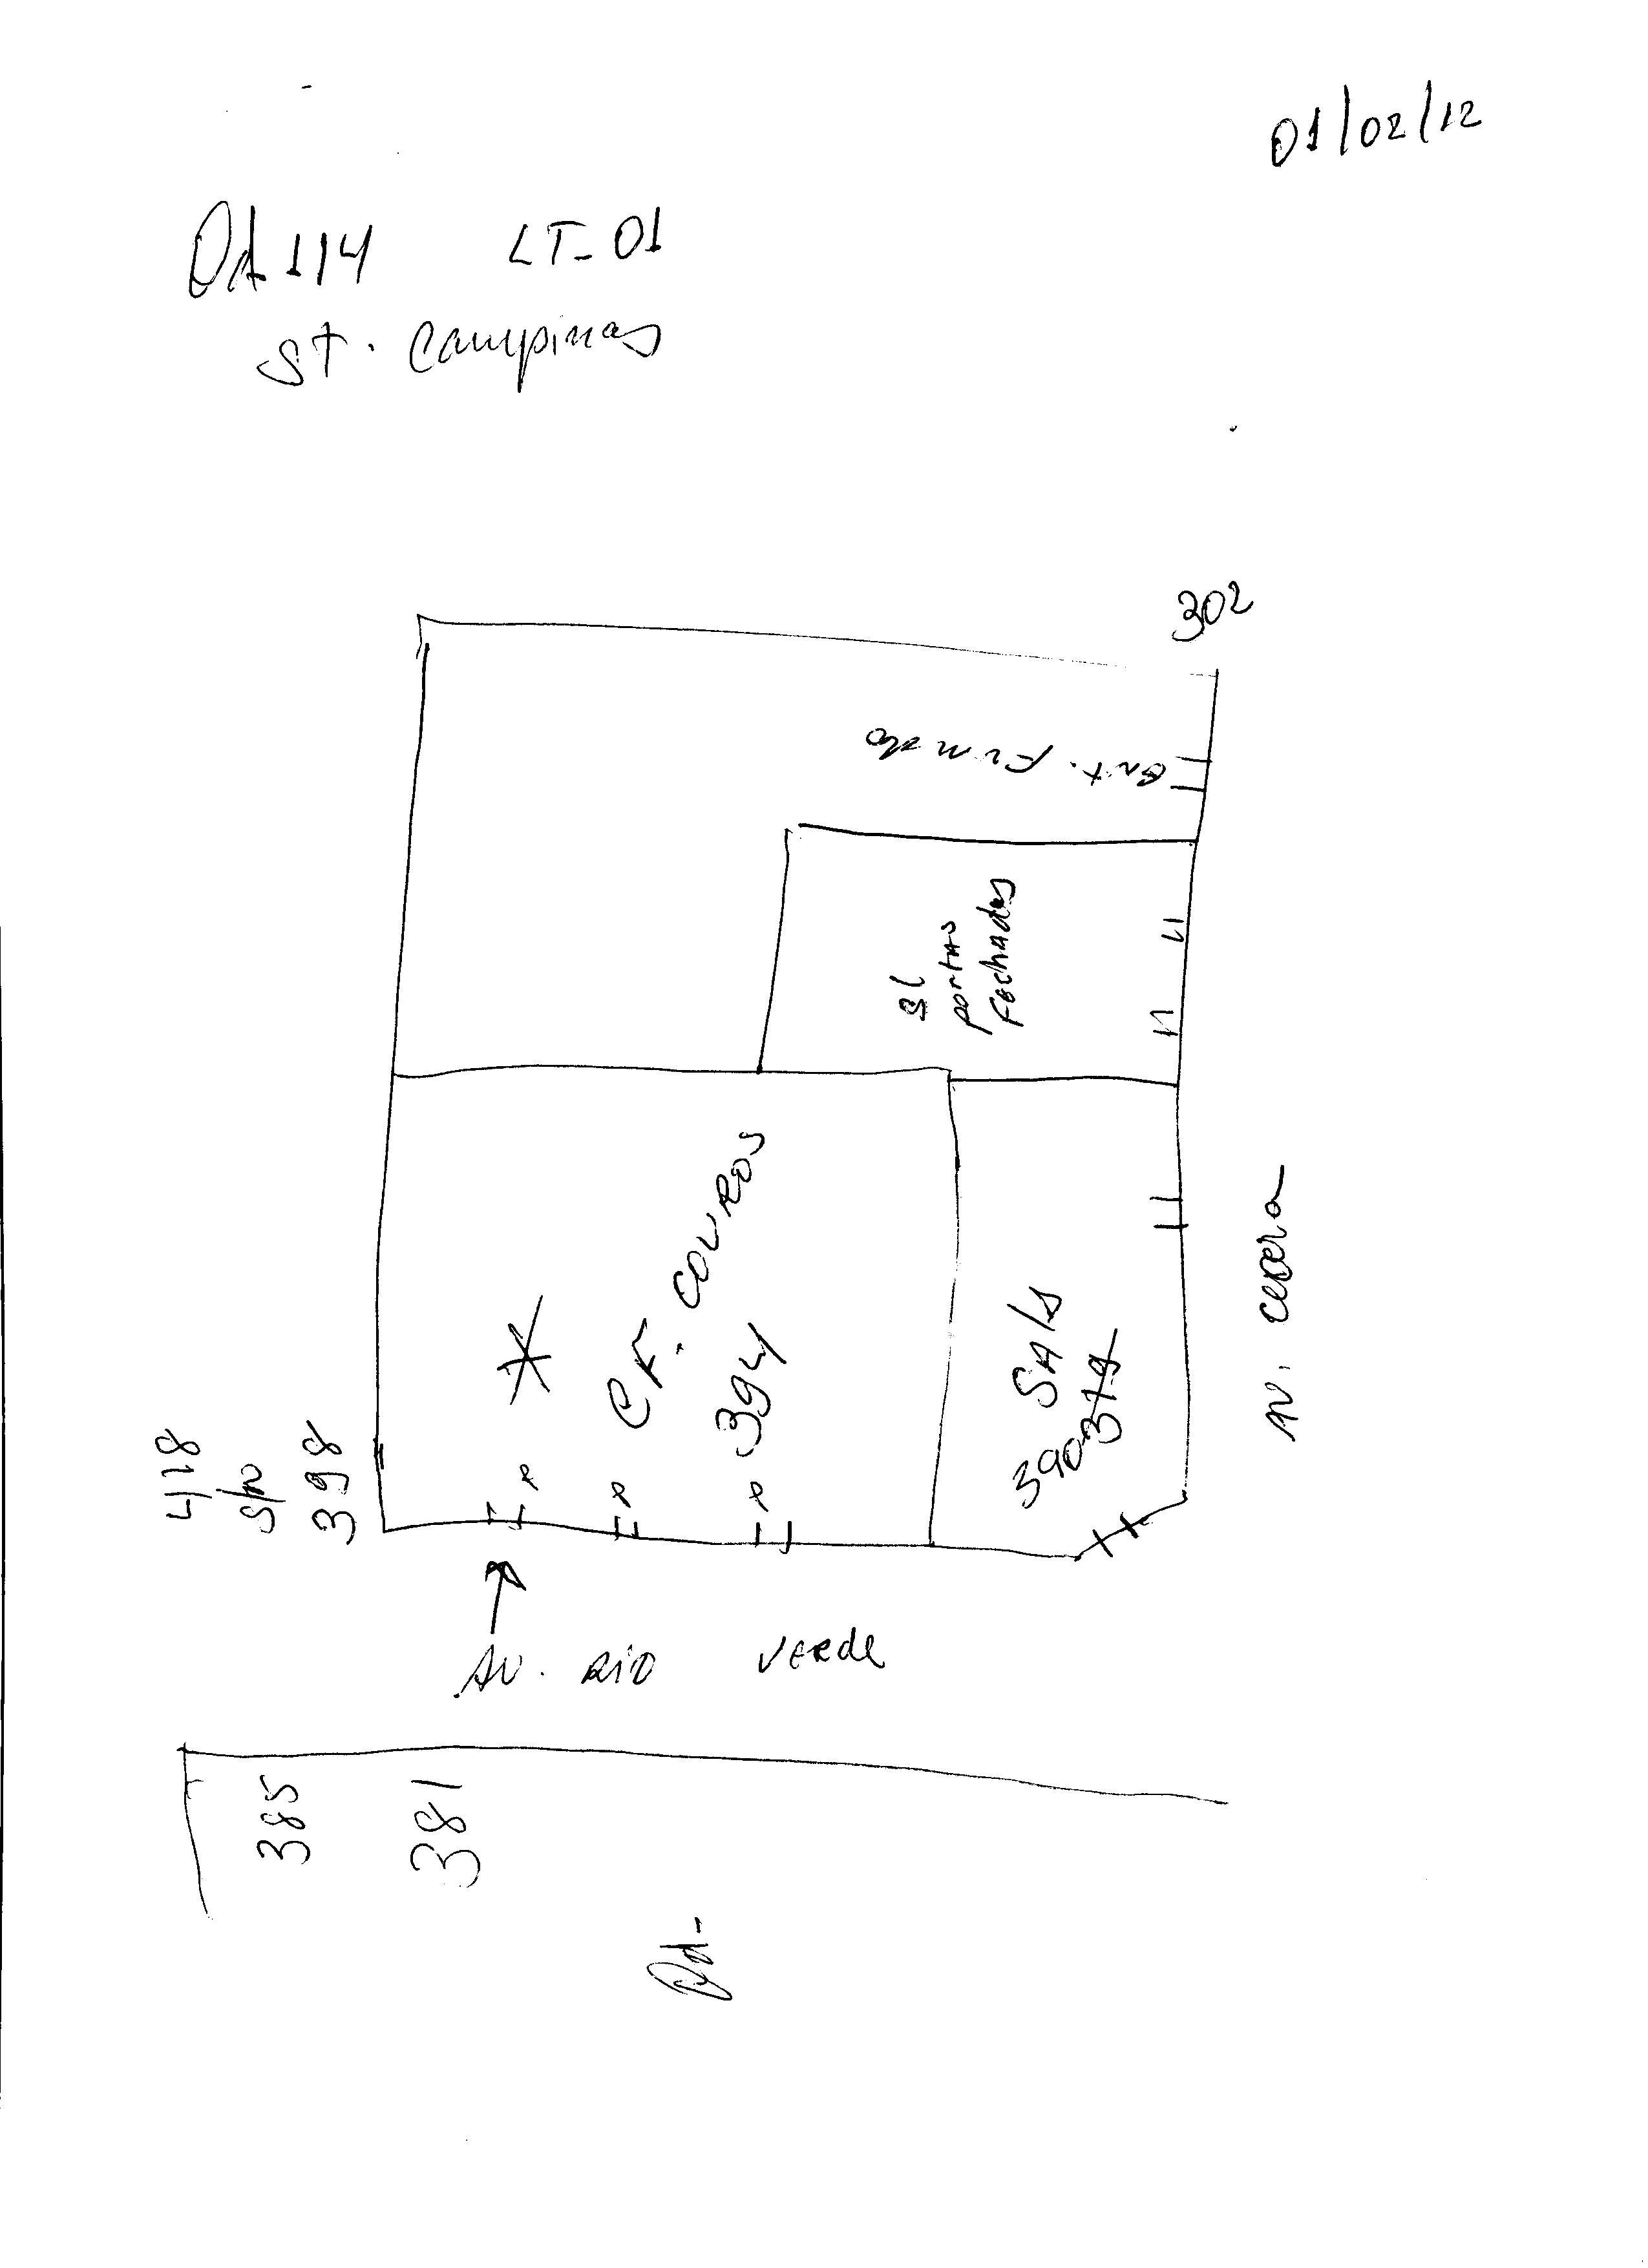 01/02/12
Qd 114 LT-01
ST. Campinas
302
Ent. Fundo
sl
portas
Fechadas
*
CF. COUROS
394
Sala
390
418
S/N
398
P P P
AV. Rio Verde
385
381
Qd-